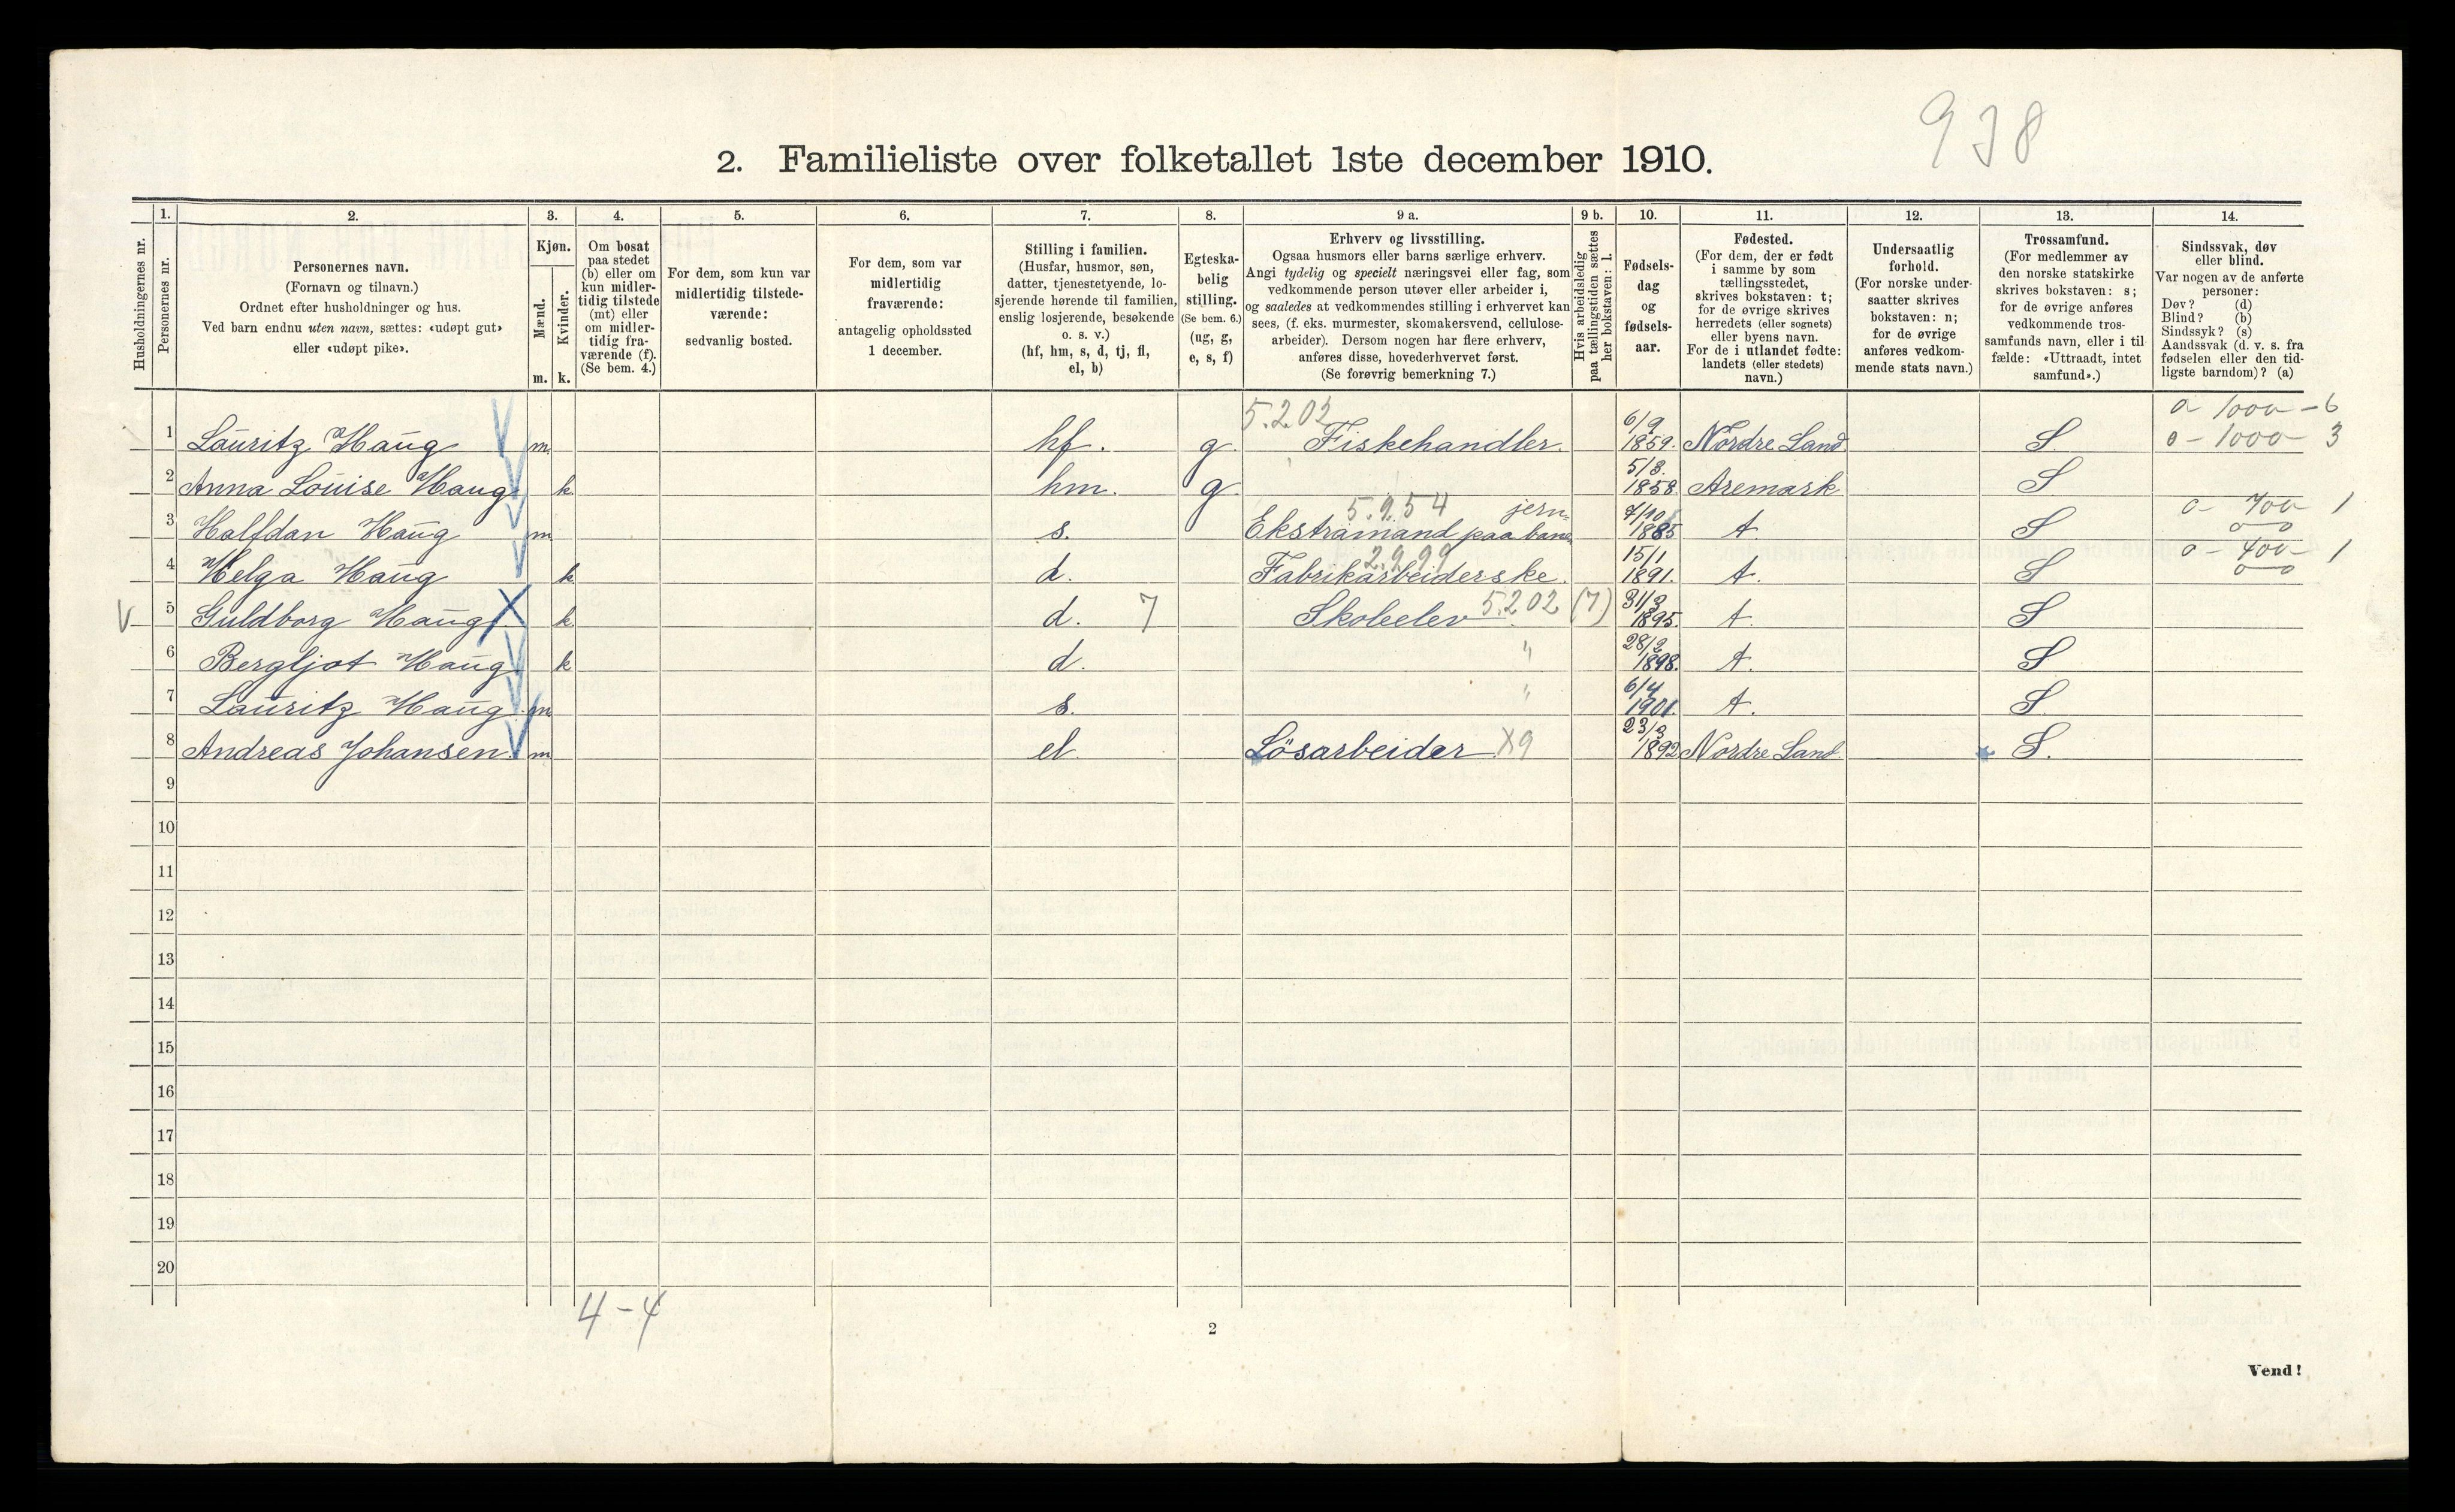 938
2. Familieliste over folketallet 1ste december 1910.
Husholdningernes nr.
1. Personernes nr.
2. Personernes navn. (Fornavn og tilnavn.) Ordnet efter husholdninger og hus. Ved barn endnu uten navn, sættes: «udøpt gut» eller «udøpt pike».
3. Kjøn. Mænd. m. Kvinder. k.
4. Om bosat paa stedet (b) eller om kun midler- tidig tilstede (mt) eller om midler- tidig fra- værende (f). (Se bem. 4.)
5. For dem, som kun var midlertidig tilstede- værende: sedvanlig bosted.
6. For dem, som var midlertidig fraværende: antagelig opholdssted 1 december.
7. Stilling i familien. (Husfar, husmor, søn, datter, tjenestetyende, lo- sjerende hørende til familien, enslig losjerende, besøkende o. s. v.) (hf, hm, s, d, tj, fl, el, b)
8. Egteska- belig stilling. (Se bem. 6.) (ug, g, e, s, f)
9 a. Erhverv og livsstilling. Ogsaa husmors eller barns særlige erhverv. Angi tydelig og specielt næringsvei eller fag, som vedkommende person utøver eller arbeider i, og saaledes at vedkommendes stilling i erhvervet kan sees, (f. eks. murmester, skomakersvend, cellulose- arbeider). Dersom nogen har flere erhverv, anføres disse, hovederhvervet først. (Se forøvrig bemerkning 7.)
9 b. Hvis arbeidsledig paa tællingstiden sættes her bokstaven: l.
10. Fødsels- dag og fødsels- aar.
11. Fødested. (For dem, der er født i samme by som tællingsstedet, skrives bokstaven: t; for de øvrige skrives herredets (eller sognets) eller byens navn. For de i utlandet fødte: landets (eller stedets) navn.)
12. Undersaatlig forhold. (For norske under- saatter skrives bokstaven: n; for de øvrige anføres vedkom- mende stats navn.)
13. Trossamfund. (For medlemmer av den norske statskirke skrives bokstaven: s; for de øvrige anføres vedkommende tros- samfunds navn, eller i til- fælde: «Uttraadt, intet samfund».)
14. Sindssvak, døv eller blind. Var nogen av de anførte personer: Døv? (d) Blind? (b) Sindssyk? (s) Aandssvak (d. v. s. fra fødselen eller den tid- ligste barndom)? (a)
5.2.02 a- 1000 - 6
1 Lauritz Haug m. hf. g. Fiskehandler. 6/9 1859. Nordre Land S. o - 1000 - 3
2 Anna Louise Haug k. hm. g. 5/8. 1858 Aremark S
5.9.54 o- 700 1
3 Halfdan Haug m. s. Ekstramand paa jern- bane 7/10 1885 t S o o
2.9.99 o - 400 - 1
4 Helga Haug k d. Fabrikarbeiderske. 15/1 1891. t. S o o
V 5 Guldborg Haug X k d. 7 Skoleelev 5.2 02 (7) 31/3 1895. t. S
6 Bergljot Haug k d. " 28/2 1898. t. S
7 Lauritz Haug m s. " 6/4 1901. t. S
8 Andreas Johansen. m el Lösarbeider X9 23/3 1892 Nordre Land. S.
9
10
11
12
13
14
15
16
17
18
19
20
4-4
2
Vend!